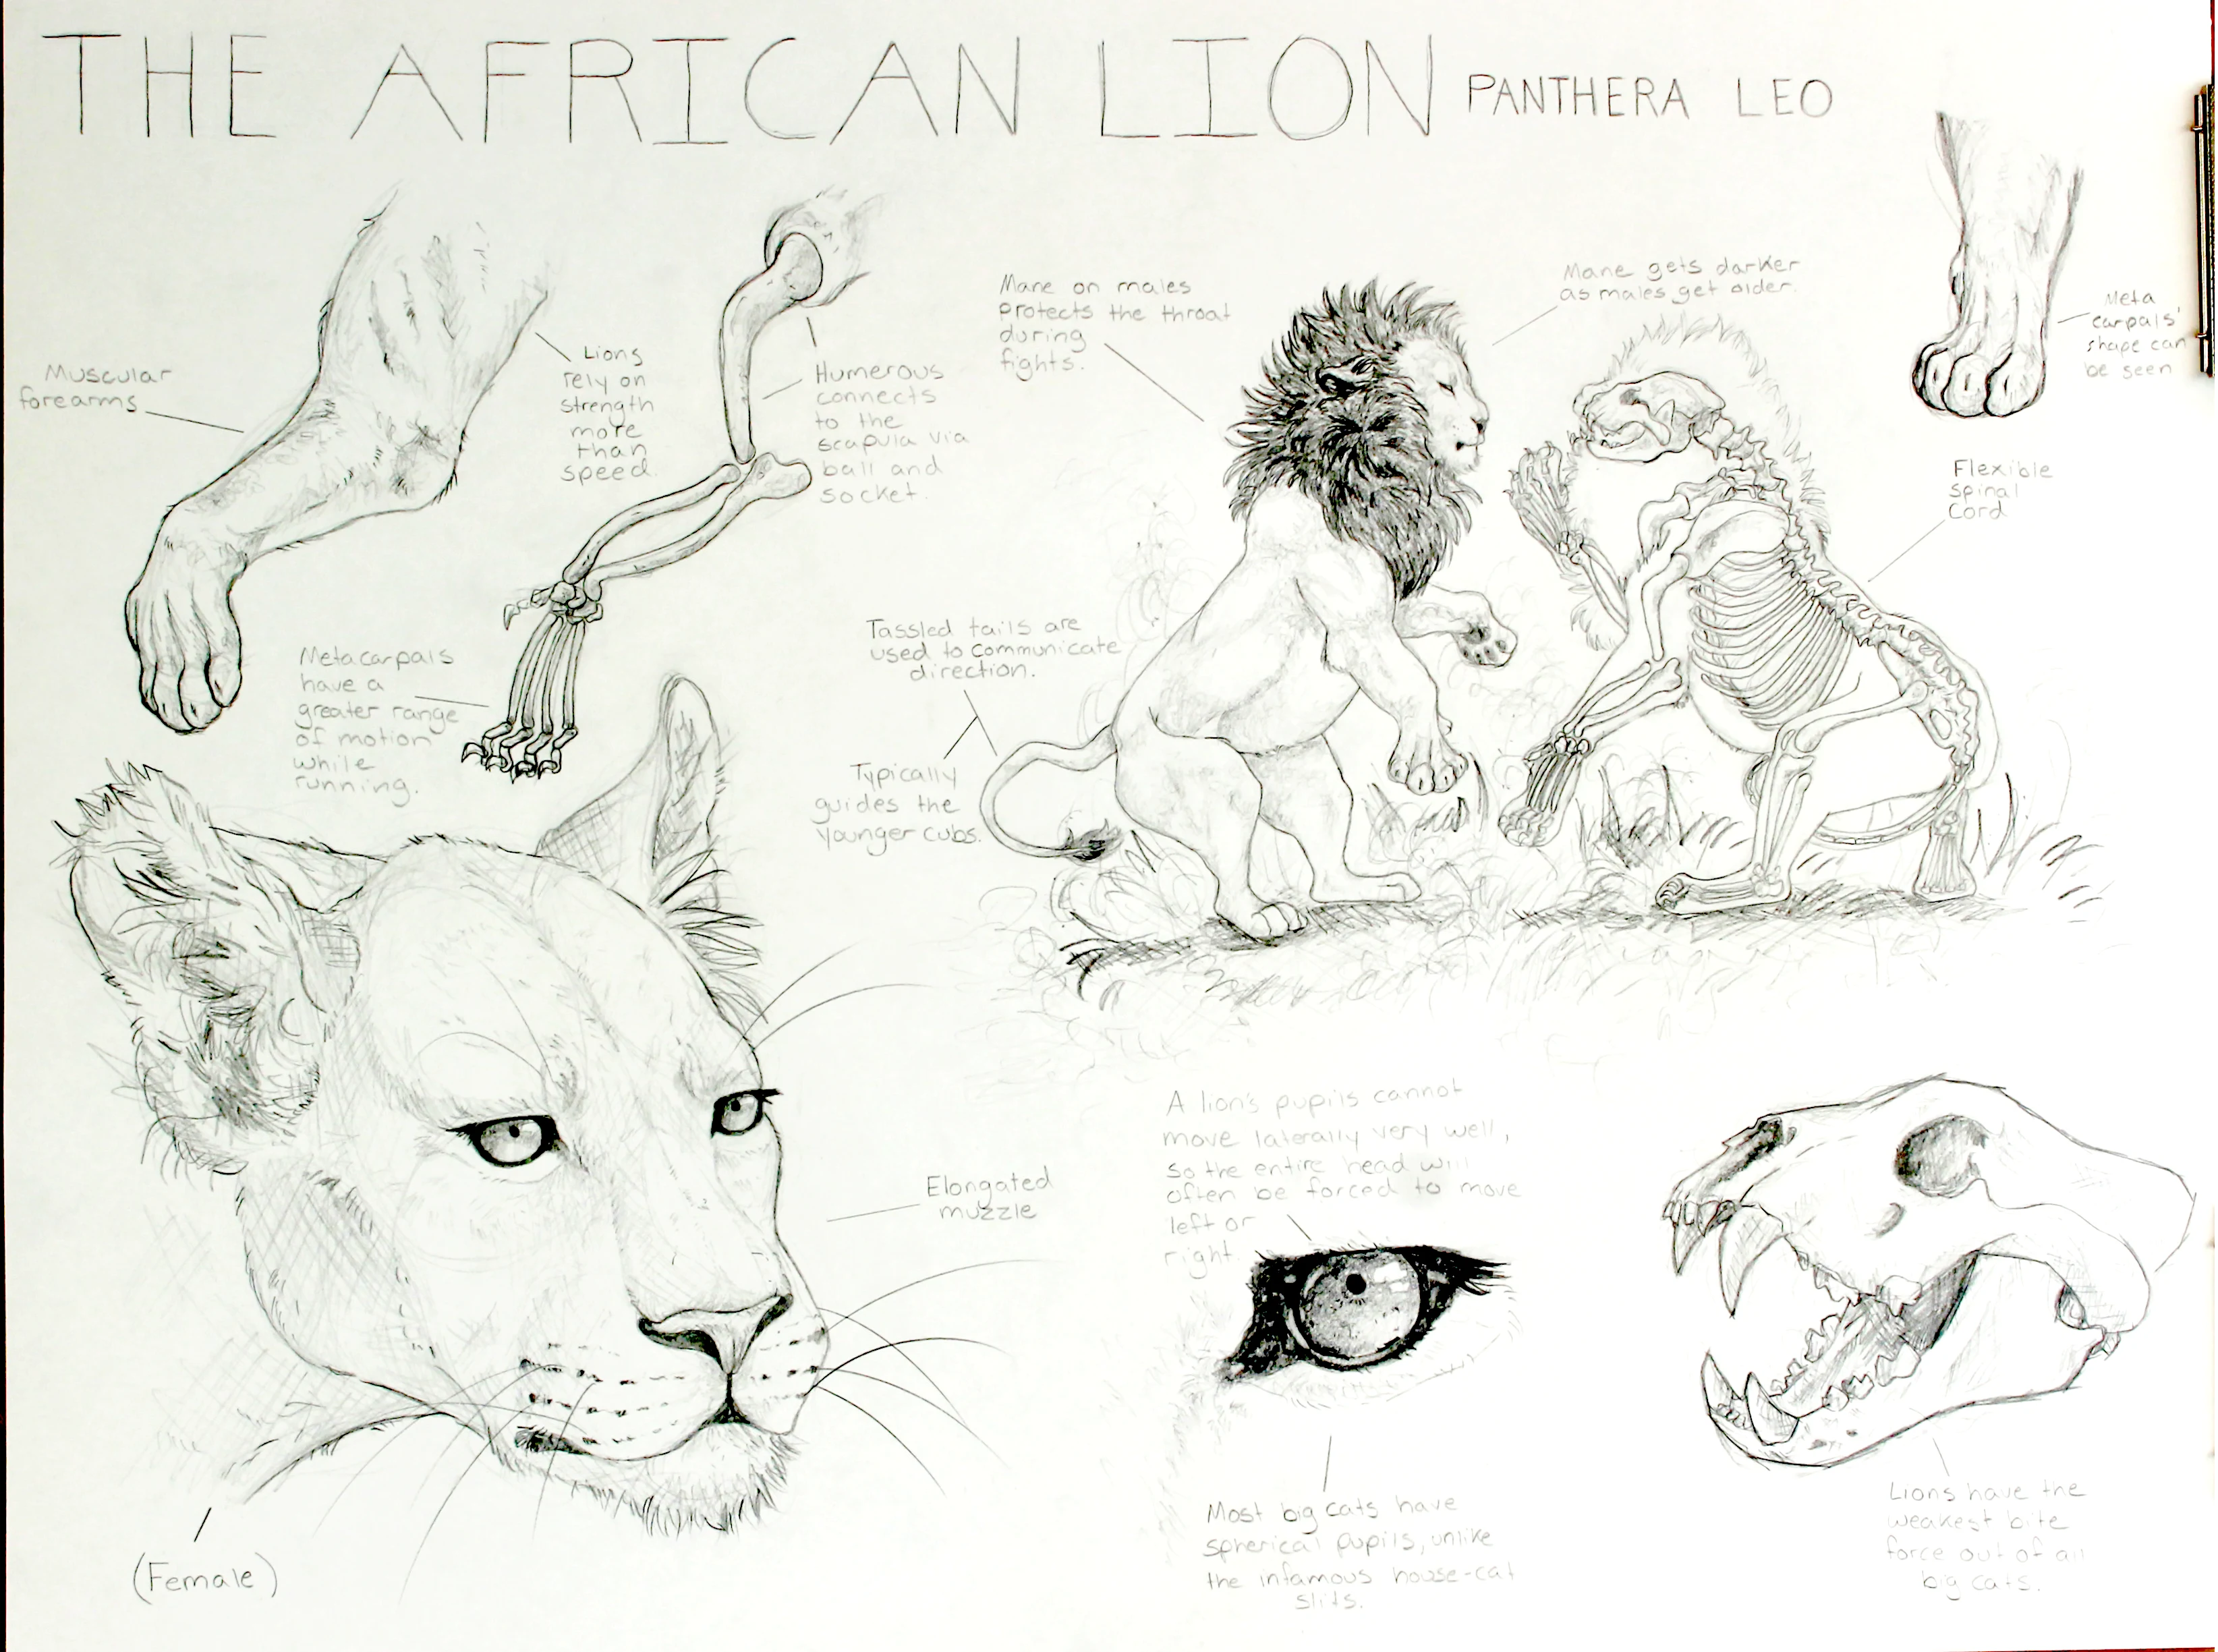 THE AFRICAN LION PANTHERA LEO
Muscular
forearms
Lions
rely on
strength
more
than
speed.
Humerous
connects
to the
scapula via
ball and
socket.
Metacarpals
have a
greater range
of motion
while
running.
Mane on males
protects the throat
during
fights.
Mane gets darker
as males get older.
Meta
carpals'
shape can
be seen
Flexible
spinal
cord
Tassled tails are
used to communicate
direction.
Typically
guides the
younger cubs.
Elongated
muzzle
(Female)
A lion's pupils cannot
move laterally very well,
so the entire head will
often be forced to move
left or
right.
Most big cats have
spherical pupils, unlike
the infamous house-cat
slits.
Lions have the
weakest bite
force out of all
big cats.